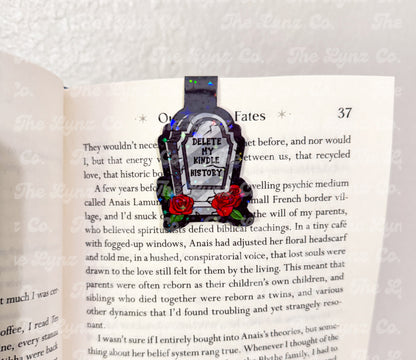 The Lynz Co.
Ou Fates
37
DELETE
MY
KINDLE
HISTORY
They wouldn't nece et before, and nor would
I, but that energy etween us, that recycled
love, that historic bo
A few years befo velling psychic medium
called Anais Lamun small French border vil-
lage, and I'd snuck the will of my parents,
who believed spiritualists defied biblical teachings. In a tiny café
with fogged-up windows, Anais had adjusted her floral headscarf
and told me, in a hushed, conspiratorial voice, that lost souls were
drawn to the love still felt for them by the living. This meant that
parents were often reborn as their children's own children, and
siblings who died together were reborn as twins, and various
other dynamics that I'd found troubling and yet strangely reso-
nant.
I wasn't sure if I entirely bought into Anais's theories, but some-
thing about her belief system rang true. Whenever I thought of the
Blythe family, I had to
t much I was cer
offee, I read Tim
ne, every stanza
hba were back